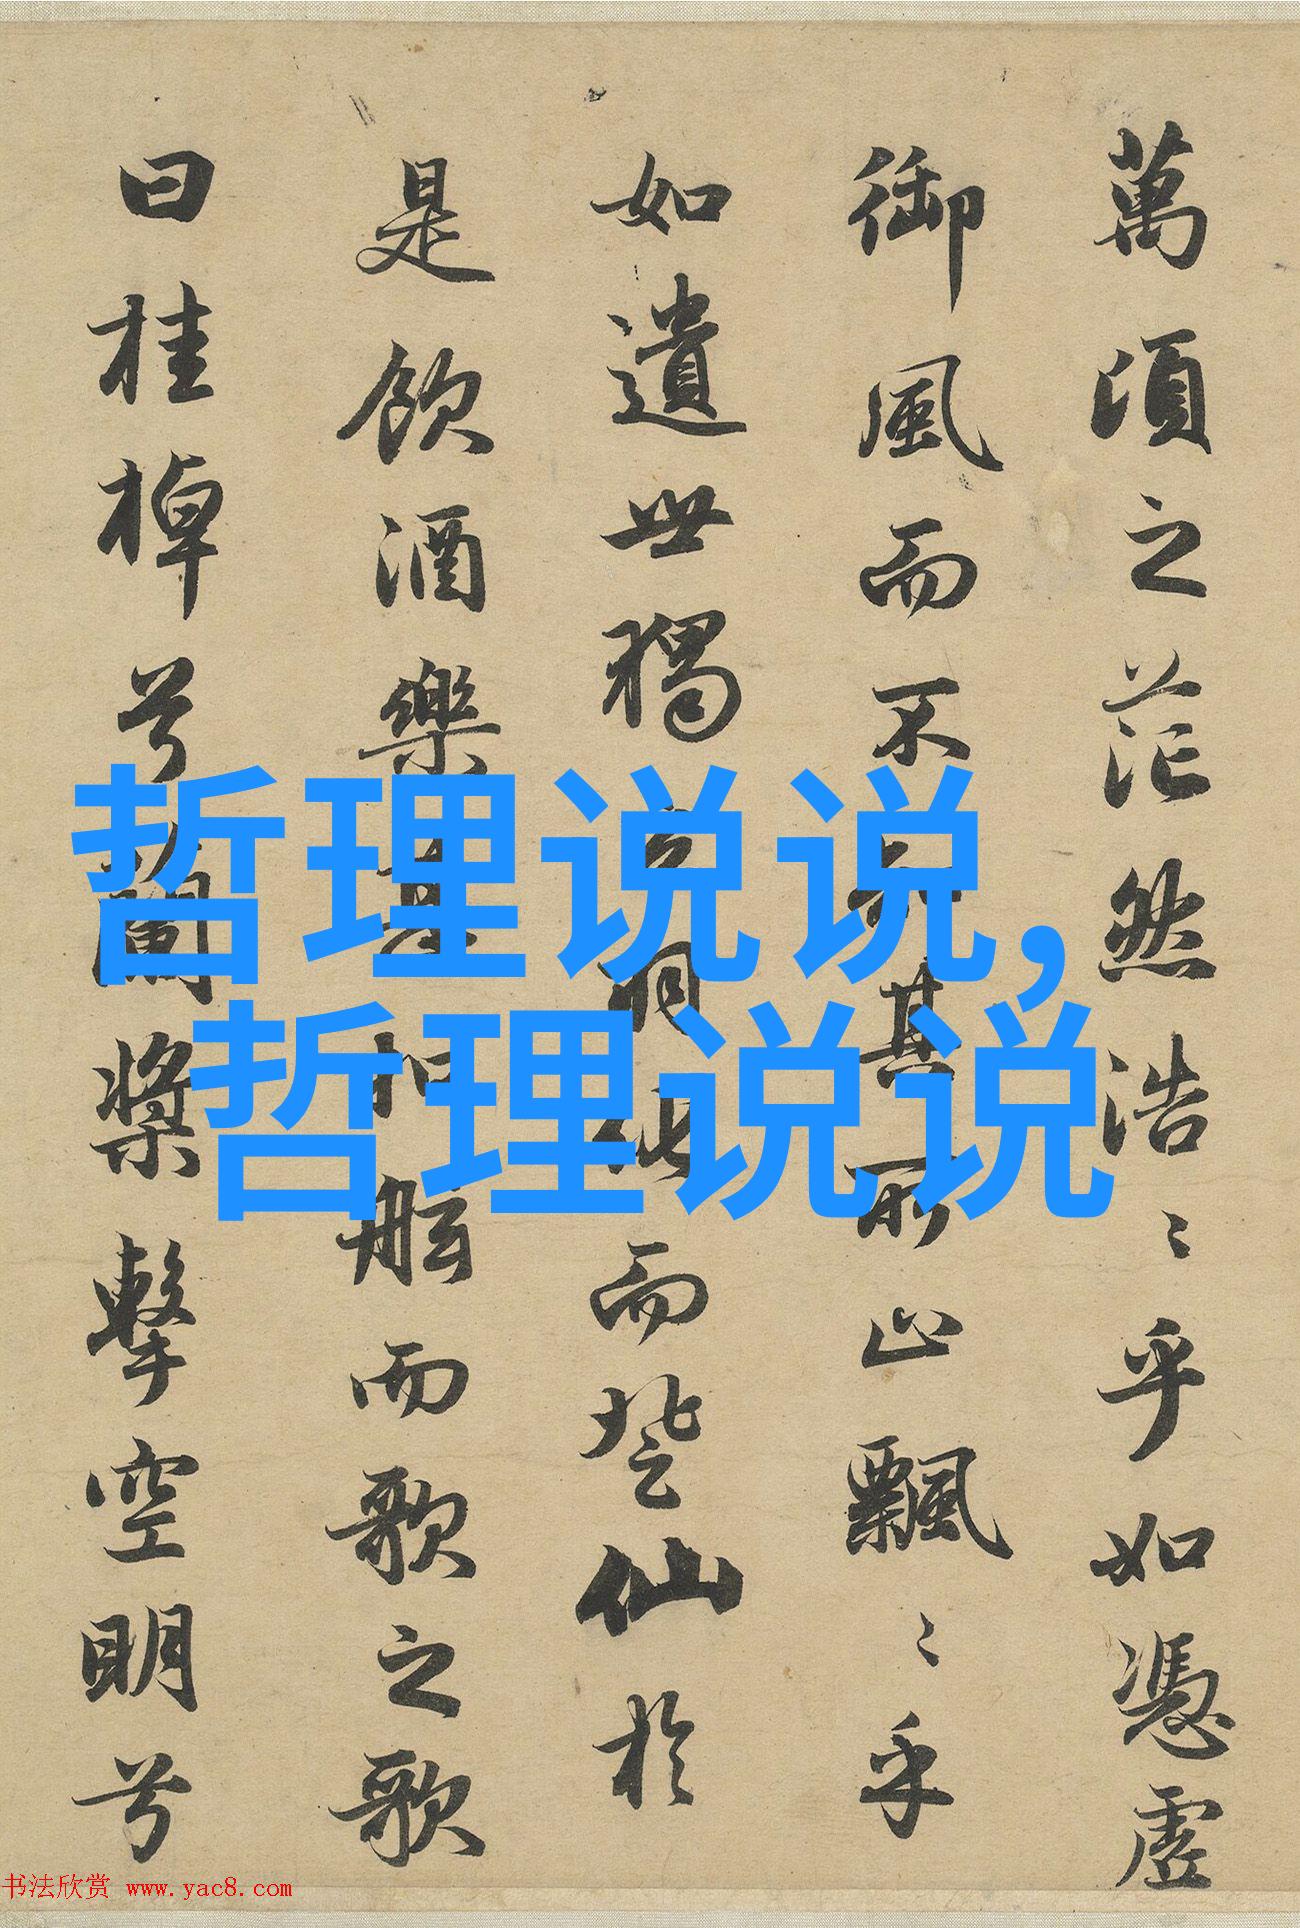 萬頃之茫然浩〻乎如憑虛
御風而不其所止飄〻乎
如遺世獨羽化而登仙於
是飲酒樂甚扣舷而歌之歌
曰桂棹兮蘭槳擊空明兮
哲理说说,
哲理说说
书法欣赏 www.yac8.com